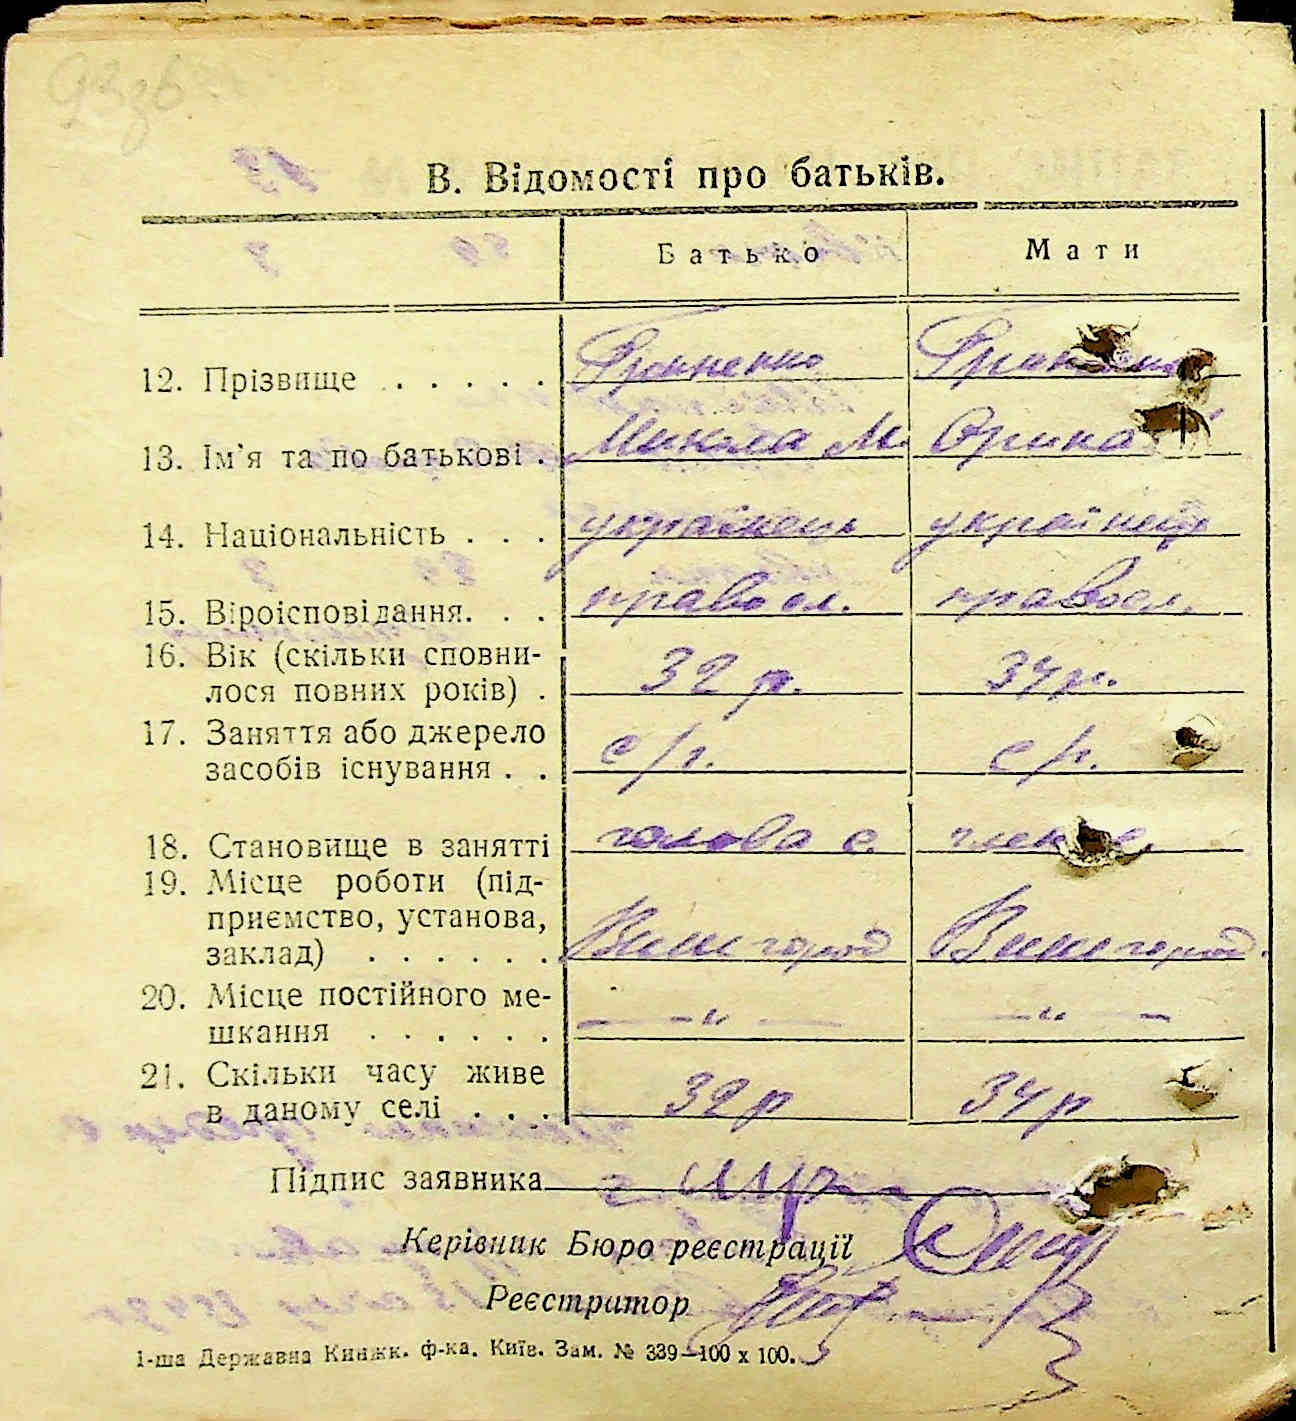 В. Відомості про батьків.
Батько Мати
12. Прізвище . . . . . Гриненко
13. Ім'я та по батькові . Микола М. Орина
14. Національність . . . українець українец
15. Віроісповідання. . . правосл. правосл.
16. Вік (скільки сповни-
лося повних років) . 32 р. 34 р.
17. Заняття або джерело
засобів існування . . с/г. с/г.
18. Становище в занятті голова с. член с.
19. Місце роботи (під-
приємство, установа,
заклад) . . . . . . Вишгород Вишгород.
20. Місце постійного ме-
шкання . . . . . . — -„- — — „ —
21. Скільки часу живе
в даному селі . . . 32 р 34 р
Підпис заявника
Керівник Бюро реєстрації
Реєстратор
1-ша Державна Книжк. ф-ка. Київ. Зам. № 339—100 х 100.